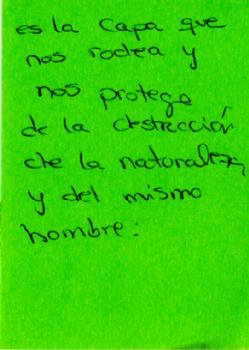 es la capa que
nos rodea y
nos protege
de la destrección
de la naturaleza
y del mismo
hombre: